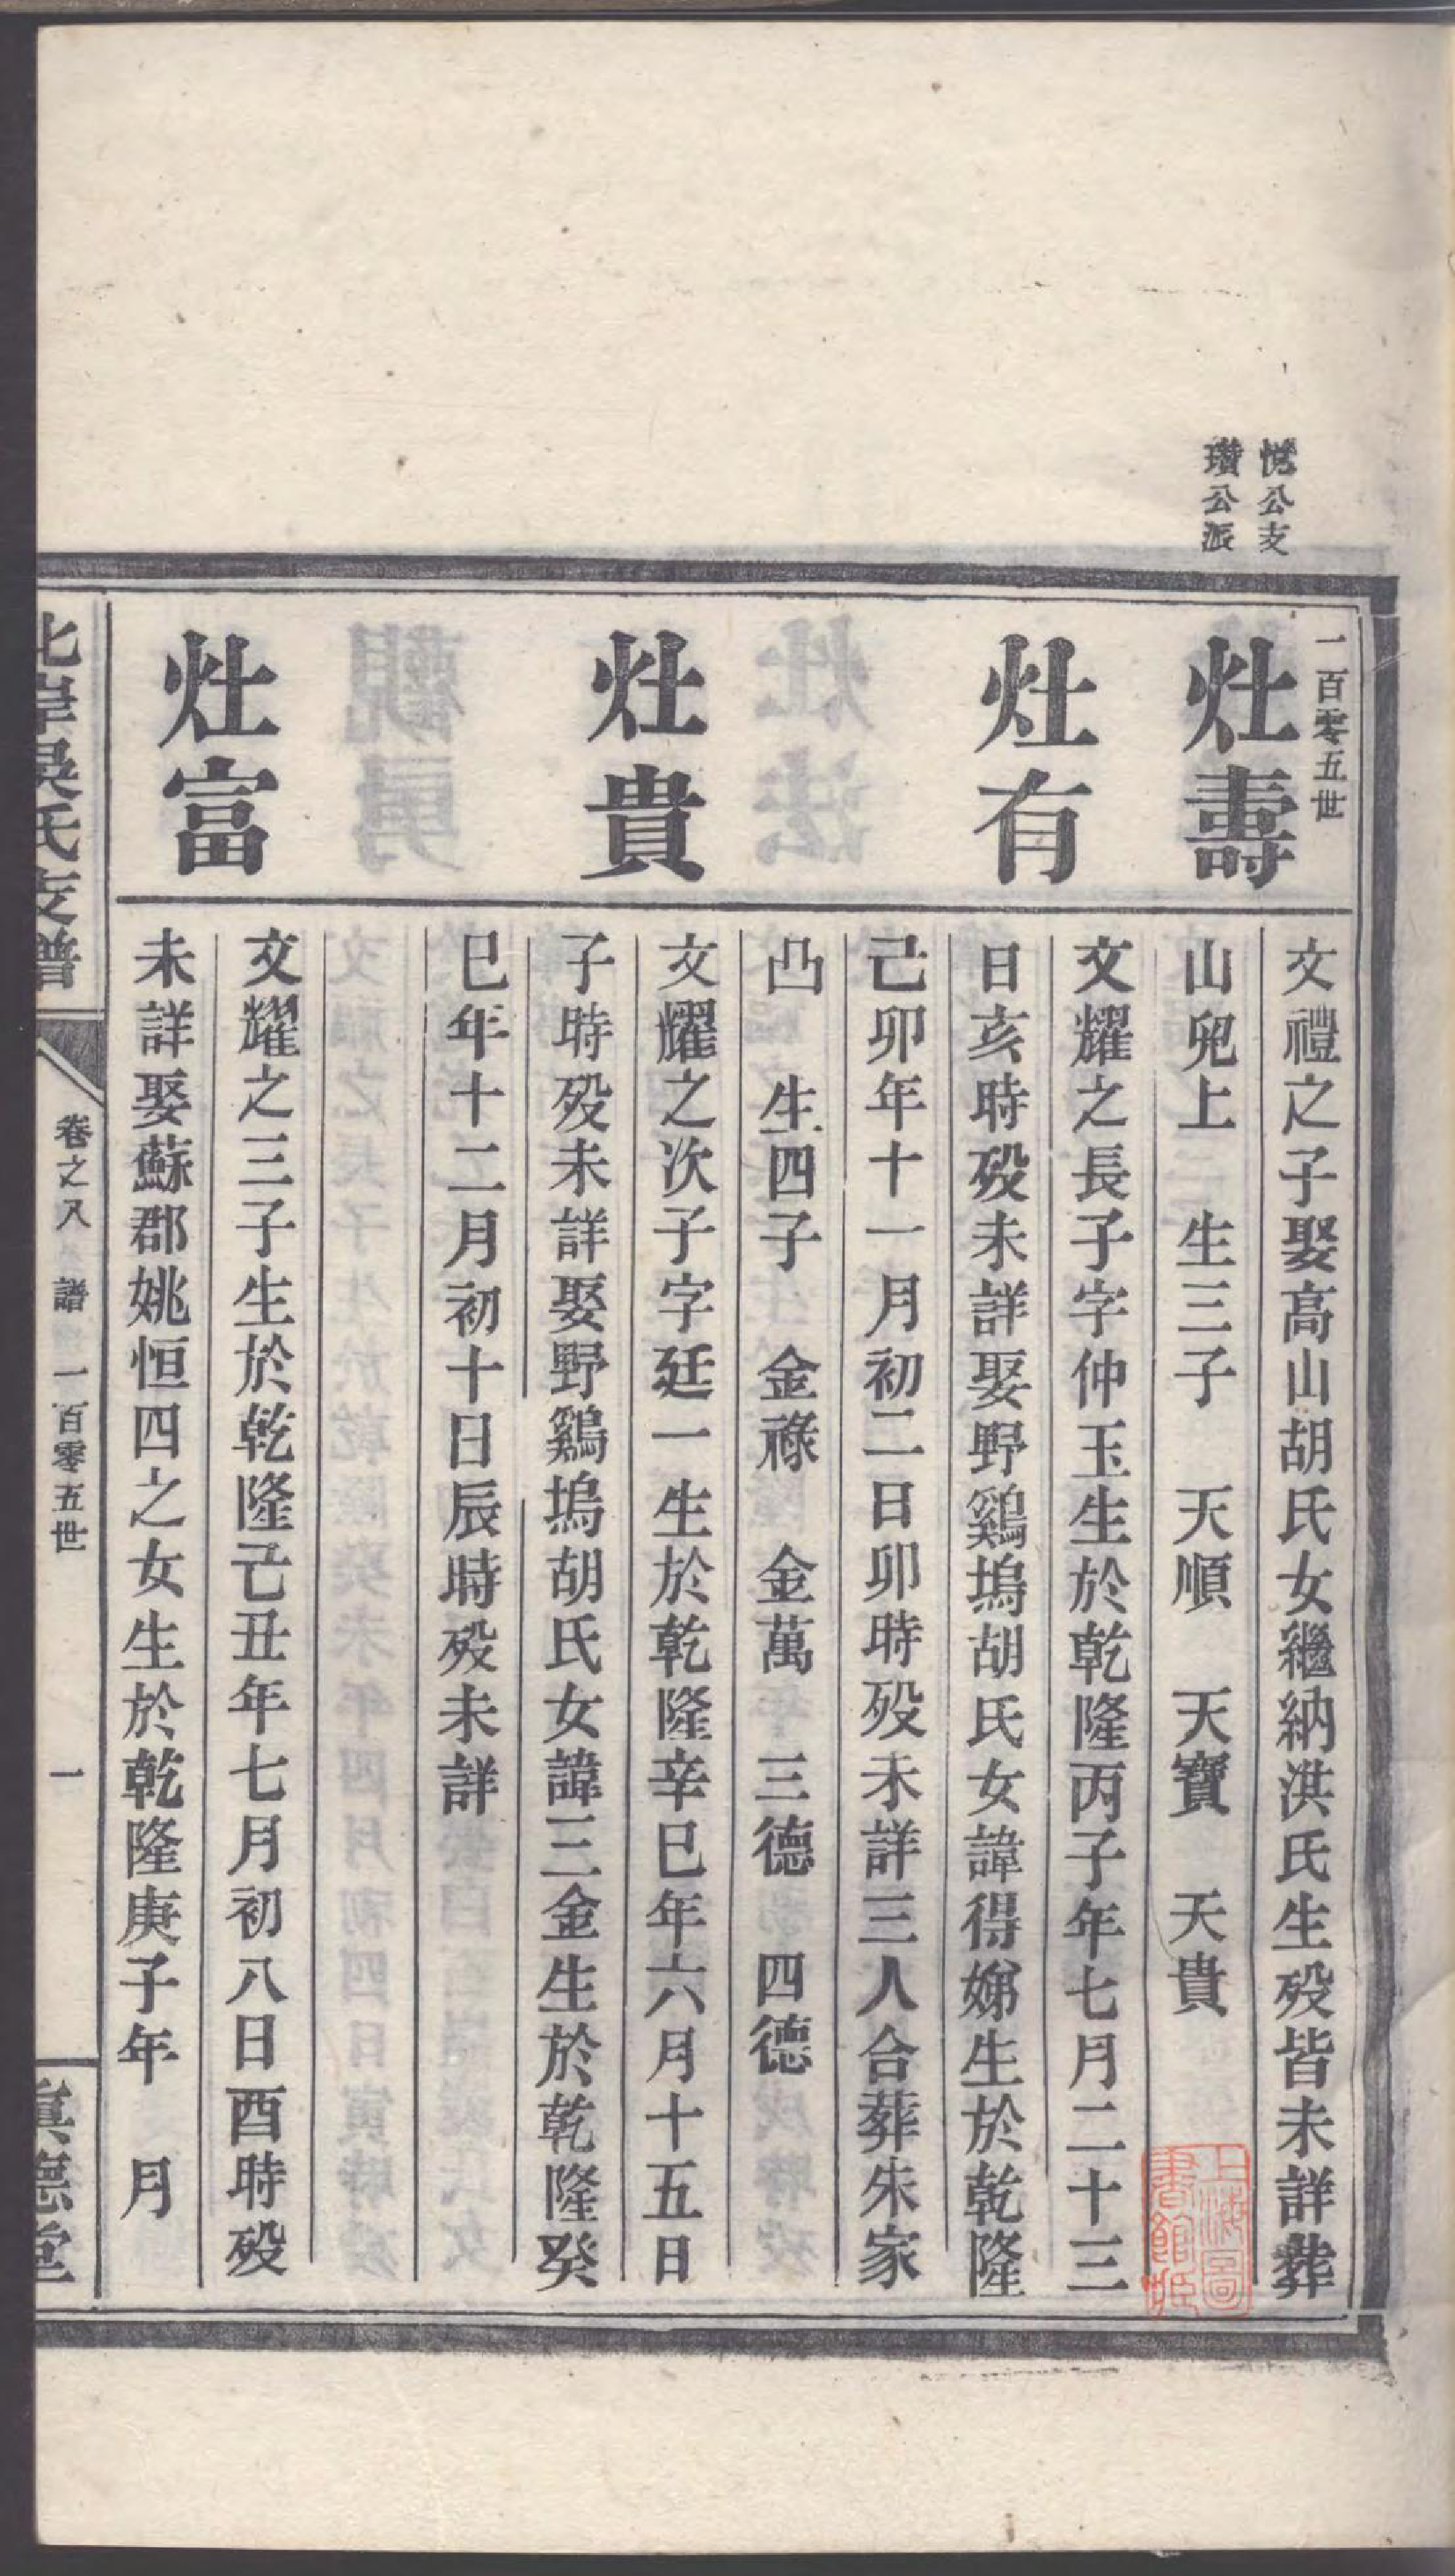 悅公支
瓚公派
一百零五世
灶壽
文禮之子娶高山胡氏女繼納淇氏生歿皆未詳葬
山兜上　生三子　天順　天寶　天貴
灶有
文耀之長子字仲玉生於乾隆丙子年七月二十三
日亥時歿未詳娶野鷄塢胡氏女諱得娣生於乾隆
己卯年十一月初二日卯時歿未詳三人合葬朱家
凸　生四子　金祿　金萬　三德　四德
灶貴
文耀之次子字廷一生於乾隆辛巳年六月十五日
子時歿未詳娶野鷄塢胡氏女諱三金生於乾隆癸
巳年十二月初十日辰時歿未詳
灶富
文耀之三子生於乾隆己丑年七月初八日酉時歿
未詳娶蘇郡姚恒四之女生於乾隆庚子年　月
北岸吳氏支譜
卷之八　譜　一百零五世
一
真德堂
上海圖
書館藏